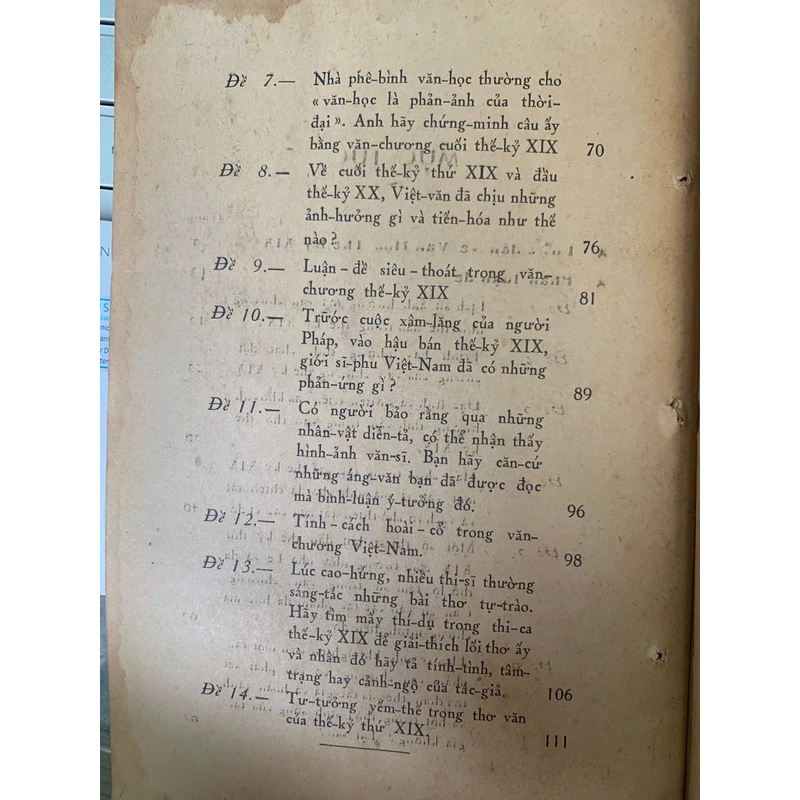 Đề 7.— Nhà phê-bình văn-học thường cho
« văn-học là phản-ảnh của thời-
đại ». Anh hãy chứng-minh câu ấy
bằng văn-chương cuối thế-kỷ XIX 70
Đề 8.— Về cuối thế-kỷ thứ XIX và đầu
thế-kỷ XX, Việt-văn đã chịu những
ảnh-hưởng gì và tiến-hóa như thế
nào ? 76
Đề 9.— Luận-đề siêu-thoát trong văn-
chương thế-kỷ XIX 81
Đề 10.— Trước cuộc xâm-lăng của người
Pháp, vào hậu bán thế-kỷ XIX,
giới sĩ-phu Việt-Nam đã có những
phản-ứng gì ? 89
Đề 11.— Có người bảo rằng qua những
nhân-vật diễn-tả, có thể nhận thấy
hình-ảnh văn-sĩ. Bạn hãy căn-cứ
những áng-văn bạn đã được đọc
mà bình-luận ý-tưởng đó. 96
Đề 12.— Tính-cách hoài-cổ trong văn-
chương Việt-Nam. 98
Đề 13.— Lúc cao-hứng, nhiều thi-sĩ thường
sáng-tác những bài thơ tự-trào.
Hãy tìm mấy thí-dụ trong thi-ca
thế-kỷ XIX để giải-thích lối thơ ấy
và nhân đó hãy tả tính-tình, tâm-
trạng hay cảnh-ngộ của tác-giả. 106
Đề 14.— Tư-tưởng yếm-thế trong thơ văn
của thế-kỷ thứ XIX. 111